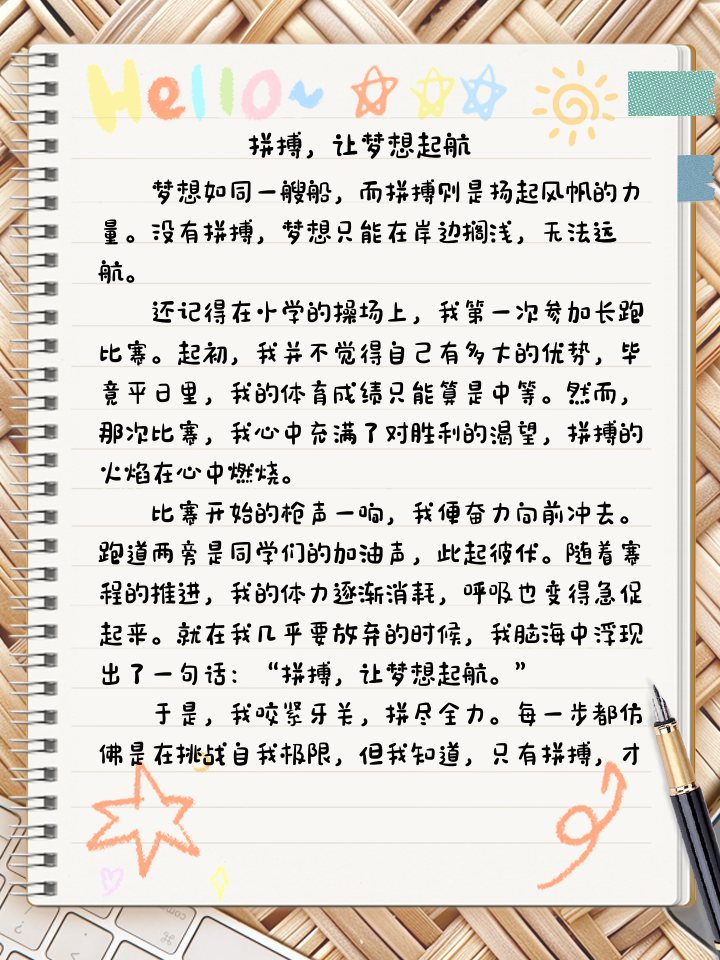 Hello~
拼搏，让梦想起航
梦想如同一艘船，而拼搏则是扬起风帆的力
量。没有拼搏，梦想只能在岸边搁浅，无法远
航。
还记得在小学的操场上，我第一次参加长跑
比赛。起初，我并不觉得自己有多大的优势，毕
竟平日里，我的体育成绩只能算是中等。然而，
那次比赛，我心中充满了对胜利的渴望，拼搏的
火焰在心中燃烧。
比赛开始的枪声一响，我便奋力向前冲去。
跑道两旁是同学们的加油声，此起彼伏。随着赛
程的推进，我的体力逐渐消耗，呼吸也变得急促
起来。就在我几乎要放弃的时候，我脑海中浮现
出了一句话：“拼搏，让梦想起航。”
于是，我咬紧牙关，拼尽全力。每一步都仿
佛是在挑战自我极限，但我知道，只有拼搏，才